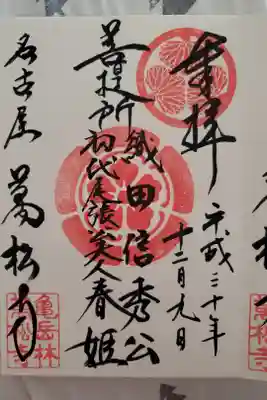 奉拝
平成三十年
十二月九日
織田信秀公
菩提所初代尾張春姫
名古屋 萬松寺
亀岳林
萬松寺